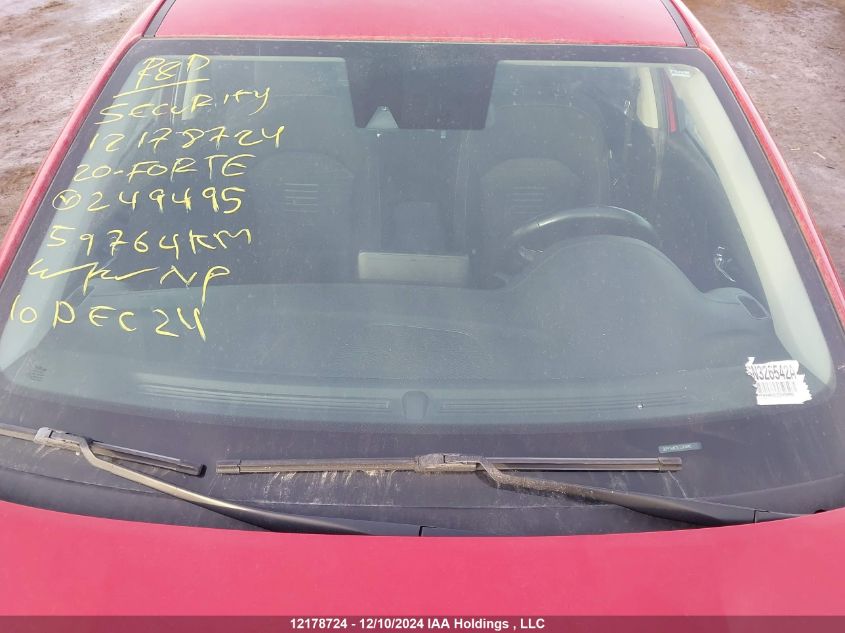 R&D
SECURITY
12178724
20-FORTE
Ⓥ249495
59764KM
NP
10 DEC 24
N326542A
12178724 - 12/10/2024 IAA Holdings , LLC